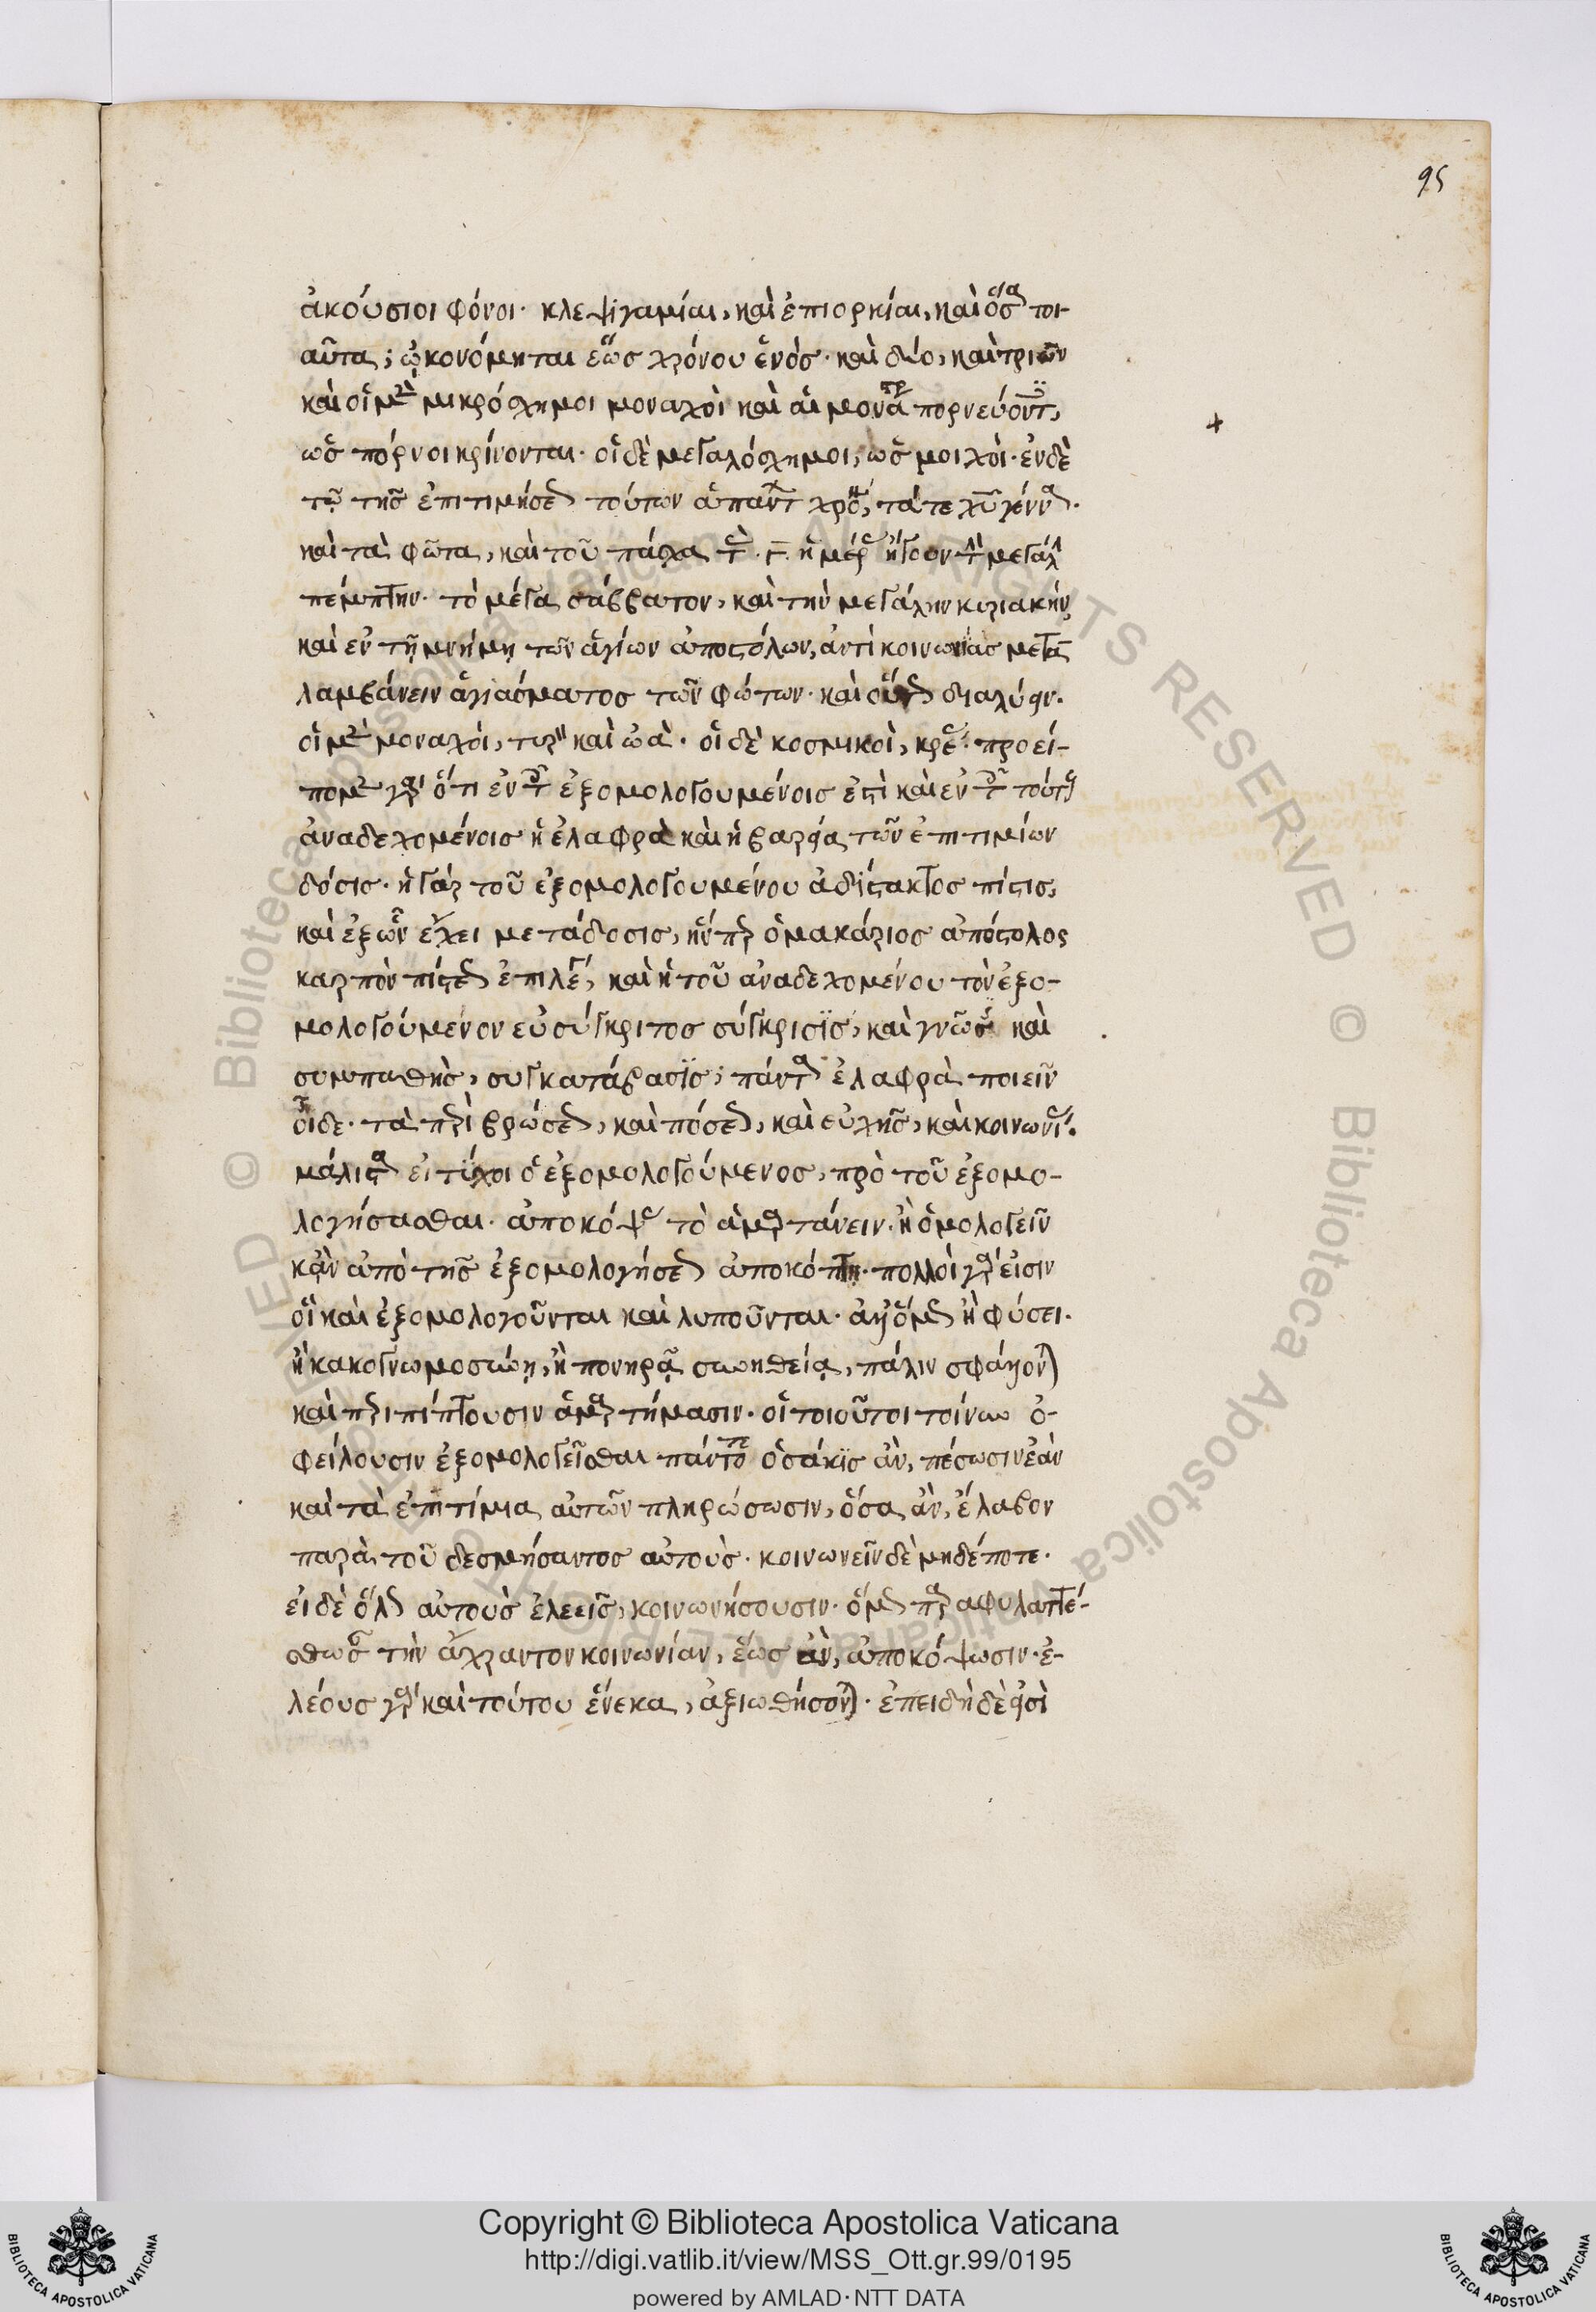 95
ἀκούσιοι φόνοι· κλεψιγαμίαι, καὶ ἐπιορκίαι, καὶ ὅσα τοι-
αῦτα; ᾠκονόμηται ἕως χρόνου ἑνὸς· καὶ δύο, καὶ τριῶν
καὶ οἱ μὲν μικρόσχημοι μοναχοὶ καὶ αἱ μονάστριαι πορνεύοντες,
ὡς πόρνοι κρίνονται· οἱ δὲ μεγαλόσχημοι, ὡς μοιχοί· ἐν δὲ
τῷ τῆς ἐπιτιμήσεως τούτων ἅπαντι χρόνῳ, τά τε χῦ γέννα·
καὶ τὰ φῶτα, καὶ τοῦ πάσχα τὰς γ ἡμέρας ἤγουν τὴν μεγάλην
πέμπτην· τὸ μέγα σάββατον, καὶ τὴν μεγάλην κυριακήν,
καὶ ἐν τῇ μνήμῃ τῶν ἁγίων ἀποστόλων, ἀντὶ κοινωνίας μετα
λαμβάνειν ἁγιάσματος τῶν φώτων· καὶ οὕτως διαλύειν·
οἱ μὲν μοναχοί, τυρὸν καὶ ὠὰ· οἱ δὲ κοσμικοὶ, κρέας· προεί-
πομεν γὰρ ὅτι ἐν τοῖς ἐξομολογουμένοις ἐστὶ καὶ ἐν τοῖς τούτους
ἀναδεχομένοις ἡ ἐλαφρὰ καὶ ἡ βαρεῖα τῶν ἐπιτιμίων
δόσις· ἡ γὰρ τοῦ ἐξομολογουμένου ἀδίστακτος πίστις,
καὶ ἐξ ὧν ἔχει μετάδοσις, ἥνπερ ὁ μακάριος ἀπόστολος
καρπὸν πίστεως ἐπιλέγει, καὶ ἡ τοῦ ἀναδεχομένου τὸν ἐξο-
μολογούμενον εὐσύγκριτος σύγκρισϊς, καὶ γνῶσις καὶ
συμπαθὴς, συγκατάβασϊς, πάντα ἐλαφρὰ ποιεῖν
οἶδε· τὰ περὶ βρώσεως, καὶ πόσεως, καὶ εὐχῆς, καὶ κοινωνίας·
μάλιστα εἰ τύχοι ὁ ἐξομολογούμενος, πρὸ τοῦ ἐξομο-
λογήσασθαι· ἀποκόψας τὸ ἁμαρτάνειν· ἢ ὁμολογεῖν
κἂν ἀπὸ τῆς ἐξομολογήσεως ἀποκόπτῃ· πολλοὶ γάρ εἰσιν
οἳ καὶ ἐξομολογοῦνται καὶ λυποῦνται· ἀλλ' ὅμως ἢ φύσει·
ἢ κακογνωμοσύνῃ, ἢ πονηρᾷ συνηθείᾳ, πάλιν σφάλλονται
καὶ περιπίπτουσιν ἁμαρτήμασιν· οἱ τοιοῦτοι τοίνυν ὀ-
φείλουσιν ἐξομολογεῖσθαι πάντοτε ὁσάκϊς ἂν, πέσωσιν ἐὰν
καὶ τὰ ἐπιτίμια αὐτῶν πληρώσωσιν, ὅσα ἂν, ἔλαβον
παρὰ τοῦ δεσμήσαντος αὐτοὺς· κοινωνεῖν δὲ μηδέποτε·
εἰ δὲ ὅλως αὐτοὺς ἐλεεῖς, κοινωνήσουσιν· ὅμως παραφυλαττέ-
σθωσαν τὴν ἄχραντον κοινωνίαν, ἕως ἂν, ἀποκόψωσιν· ἐ-
λέους γὰρ καὶ τούτου ἕνεκα, ἀξιωθήσονται· ἐπειδὴ δὲ φησὶ
Copyright © Biblioteca Apostolica Vaticana
http://digi.vatlib.it/view/MSS_Ott.gr.99/0195
powered by AMLAD·NTT DATA